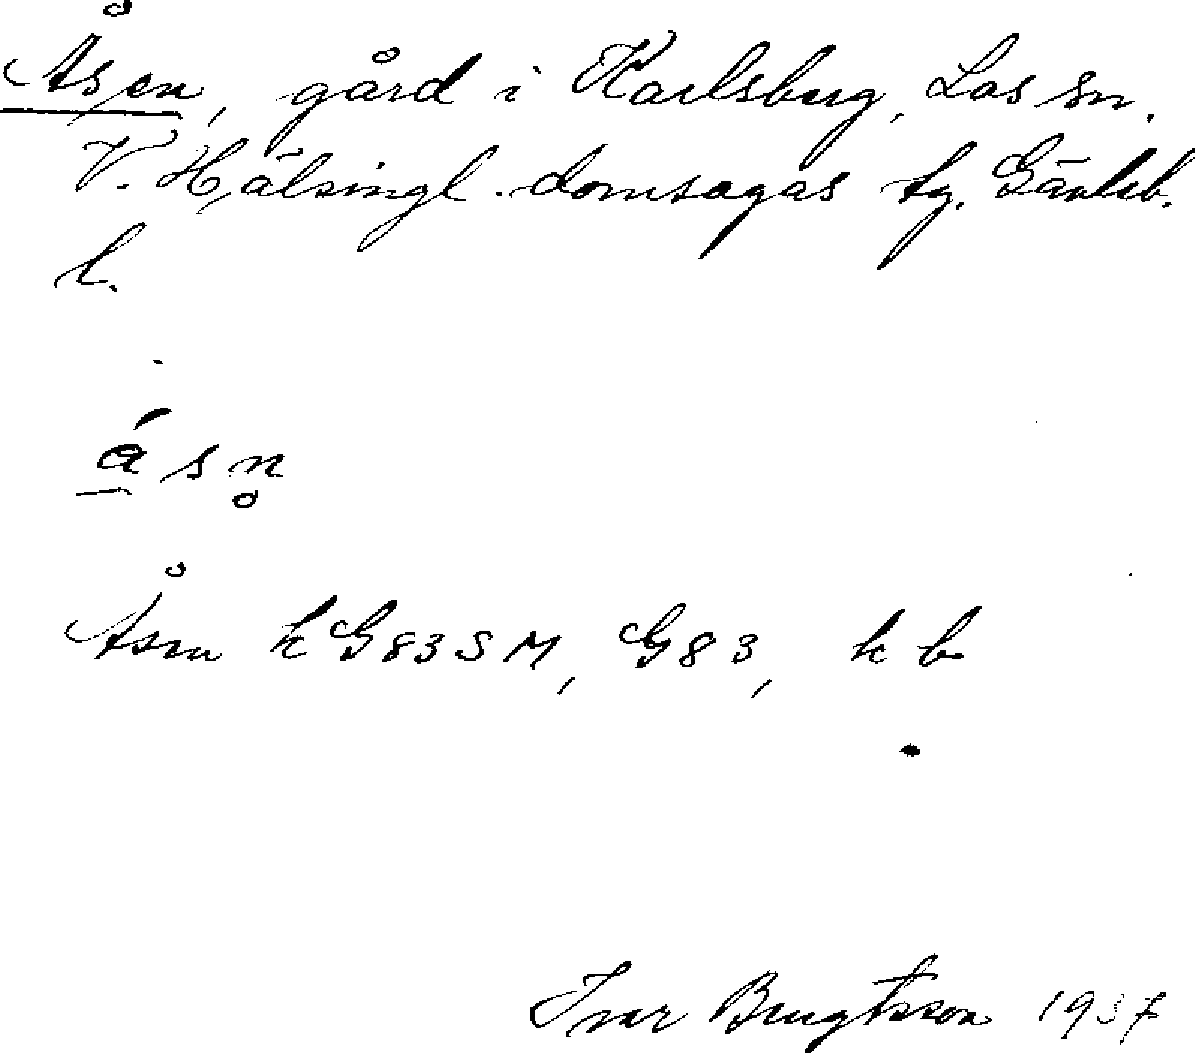 Åsen, gård i Karlsberg, Los sn.
V. Hälsingl. domsagas tg. Gävleb.
l.
á s n̥
Åsen k G83SM, G83, k b
Ivar Bengtsson 1937